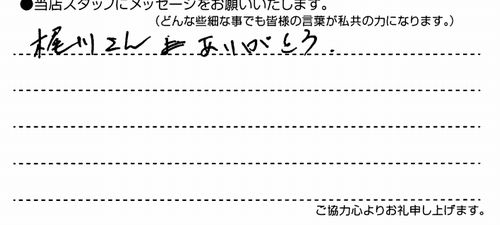 ●当店スタッフにメッセージをお願いいたします。
（どんな些細な事でも皆様の言葉が私共の力になります。）
梶川さん ありがとう.
ご協力心よりお礼申し上げます。